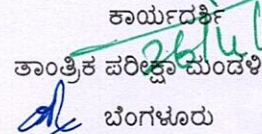 ಕಾರ್ಯದರ್ಶಿ
ತಾಂತ್ರಿಕ ಪರೀಕ್ಷಾ ಮಂಡಳಿ
ಬೆಂಗಳೂರು